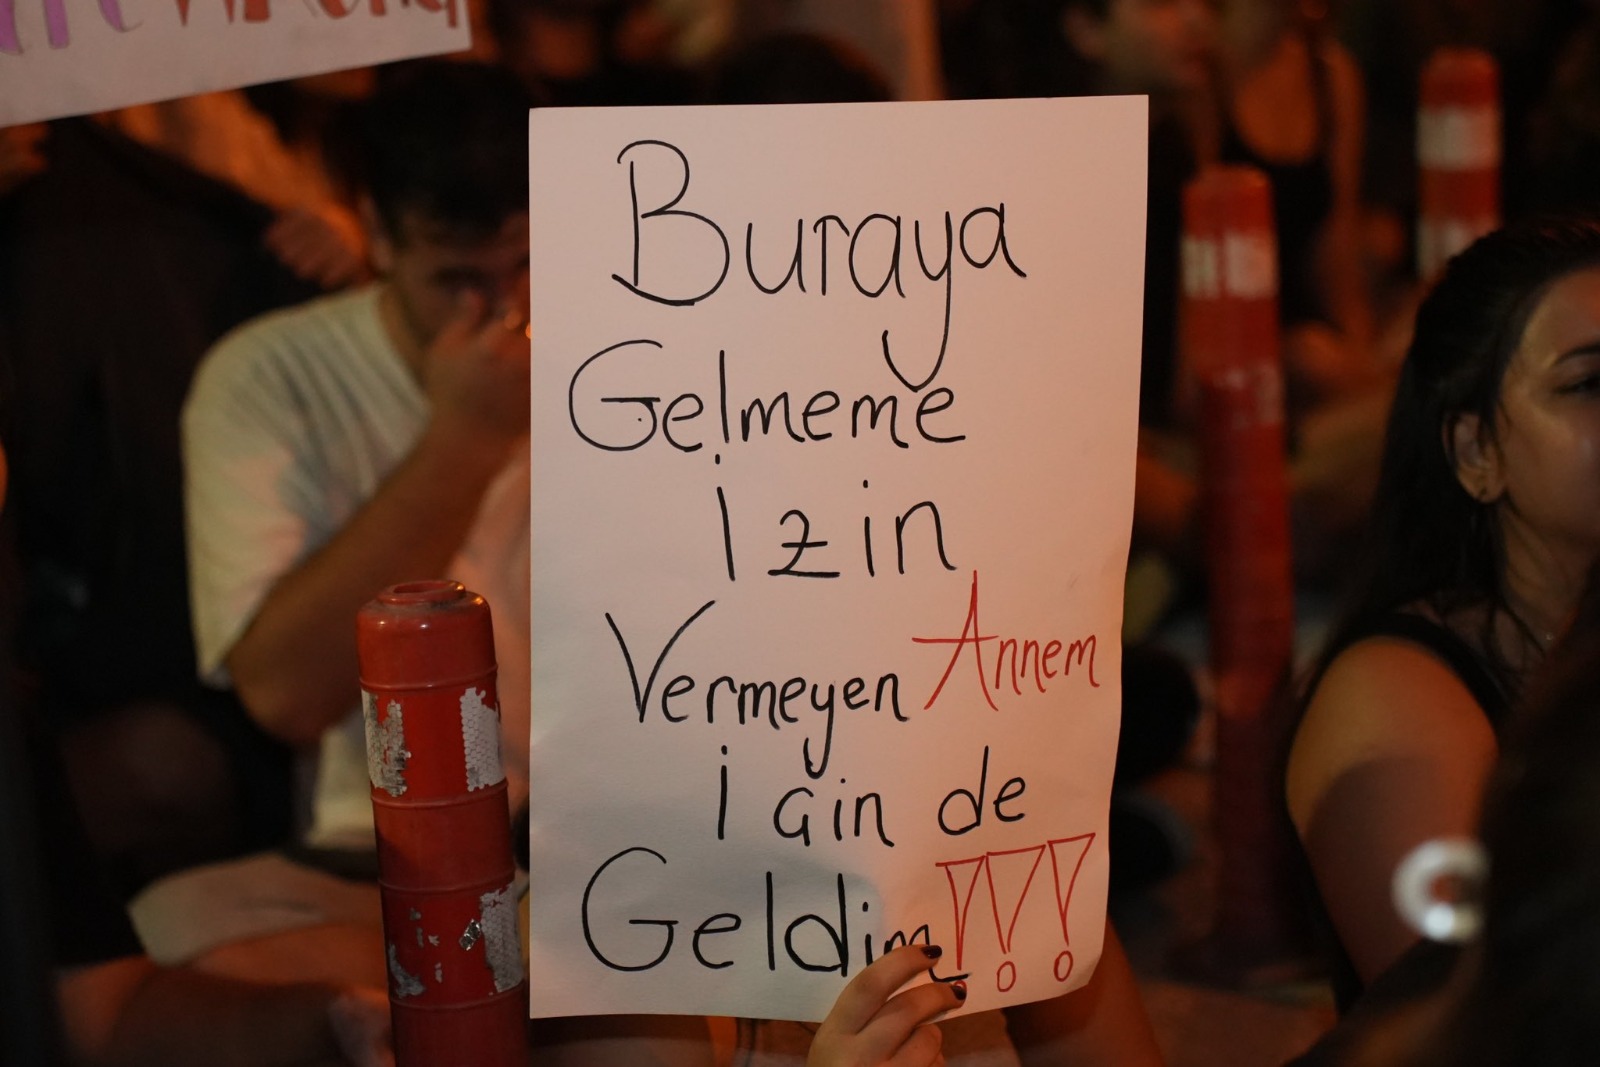 Buraya
Gelmeme
İzin
Vermeyen Annem
İçin de
Geldim!!!